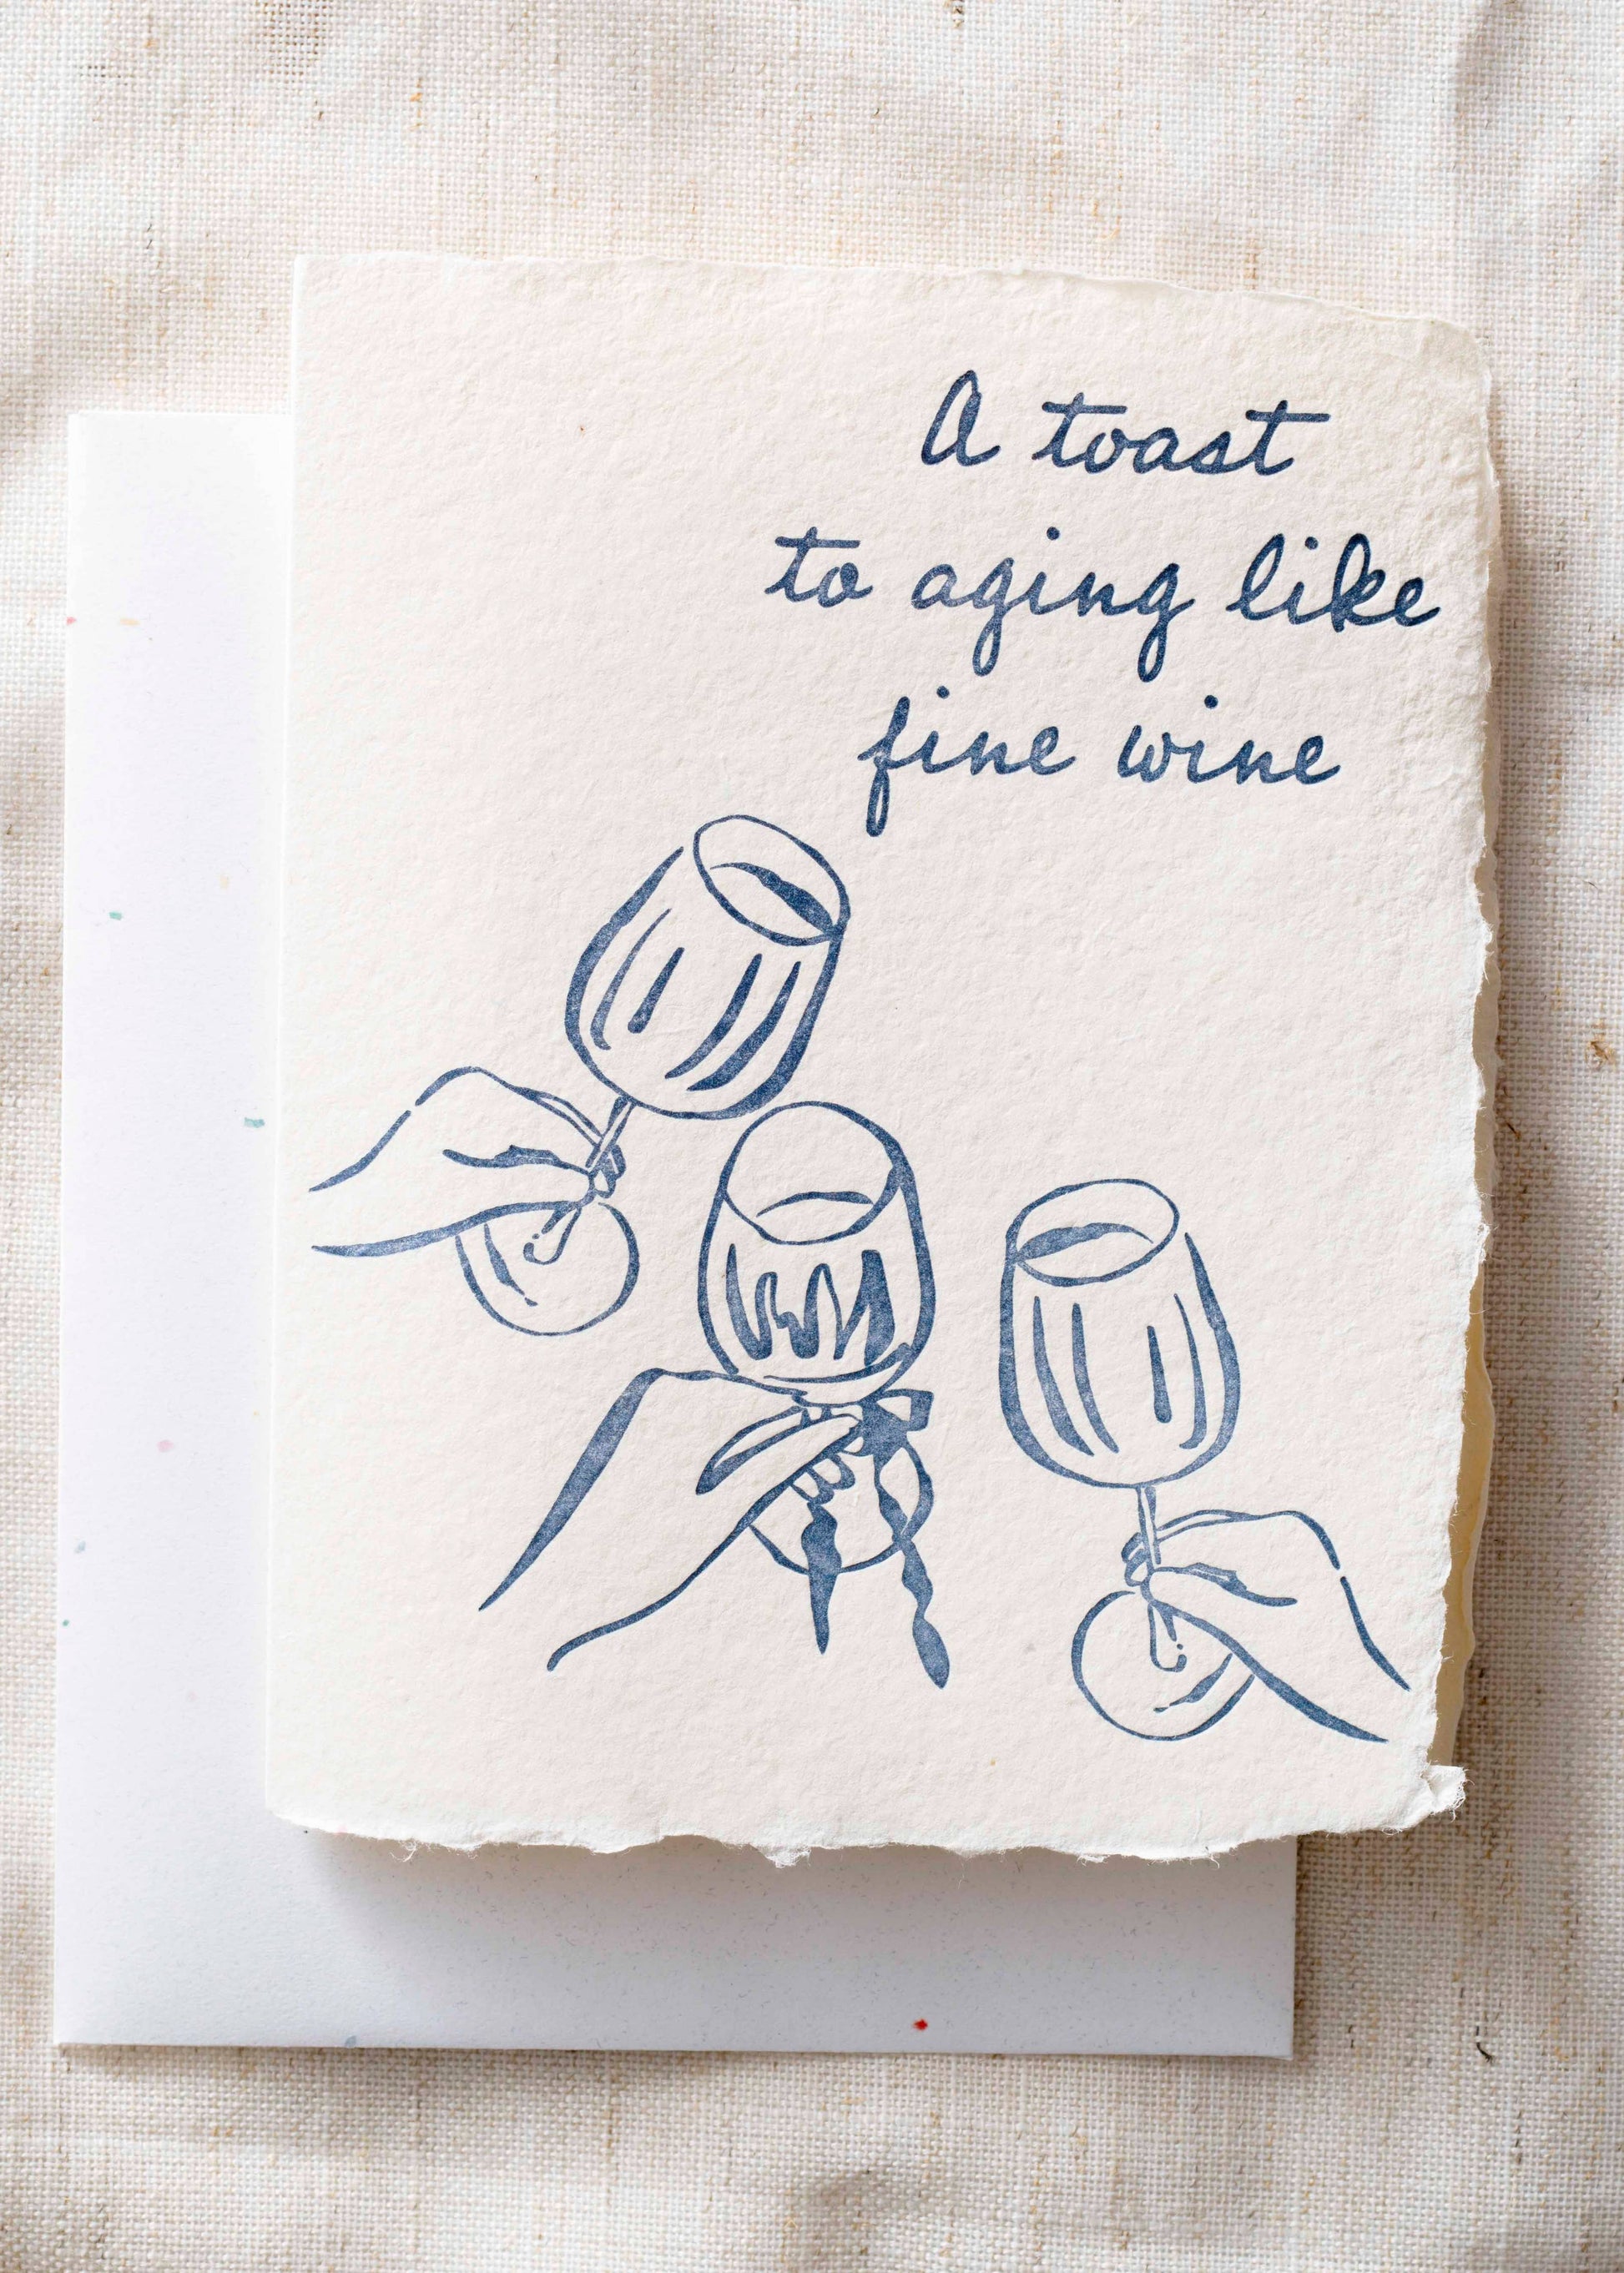 A toast
to aging like
fine wine